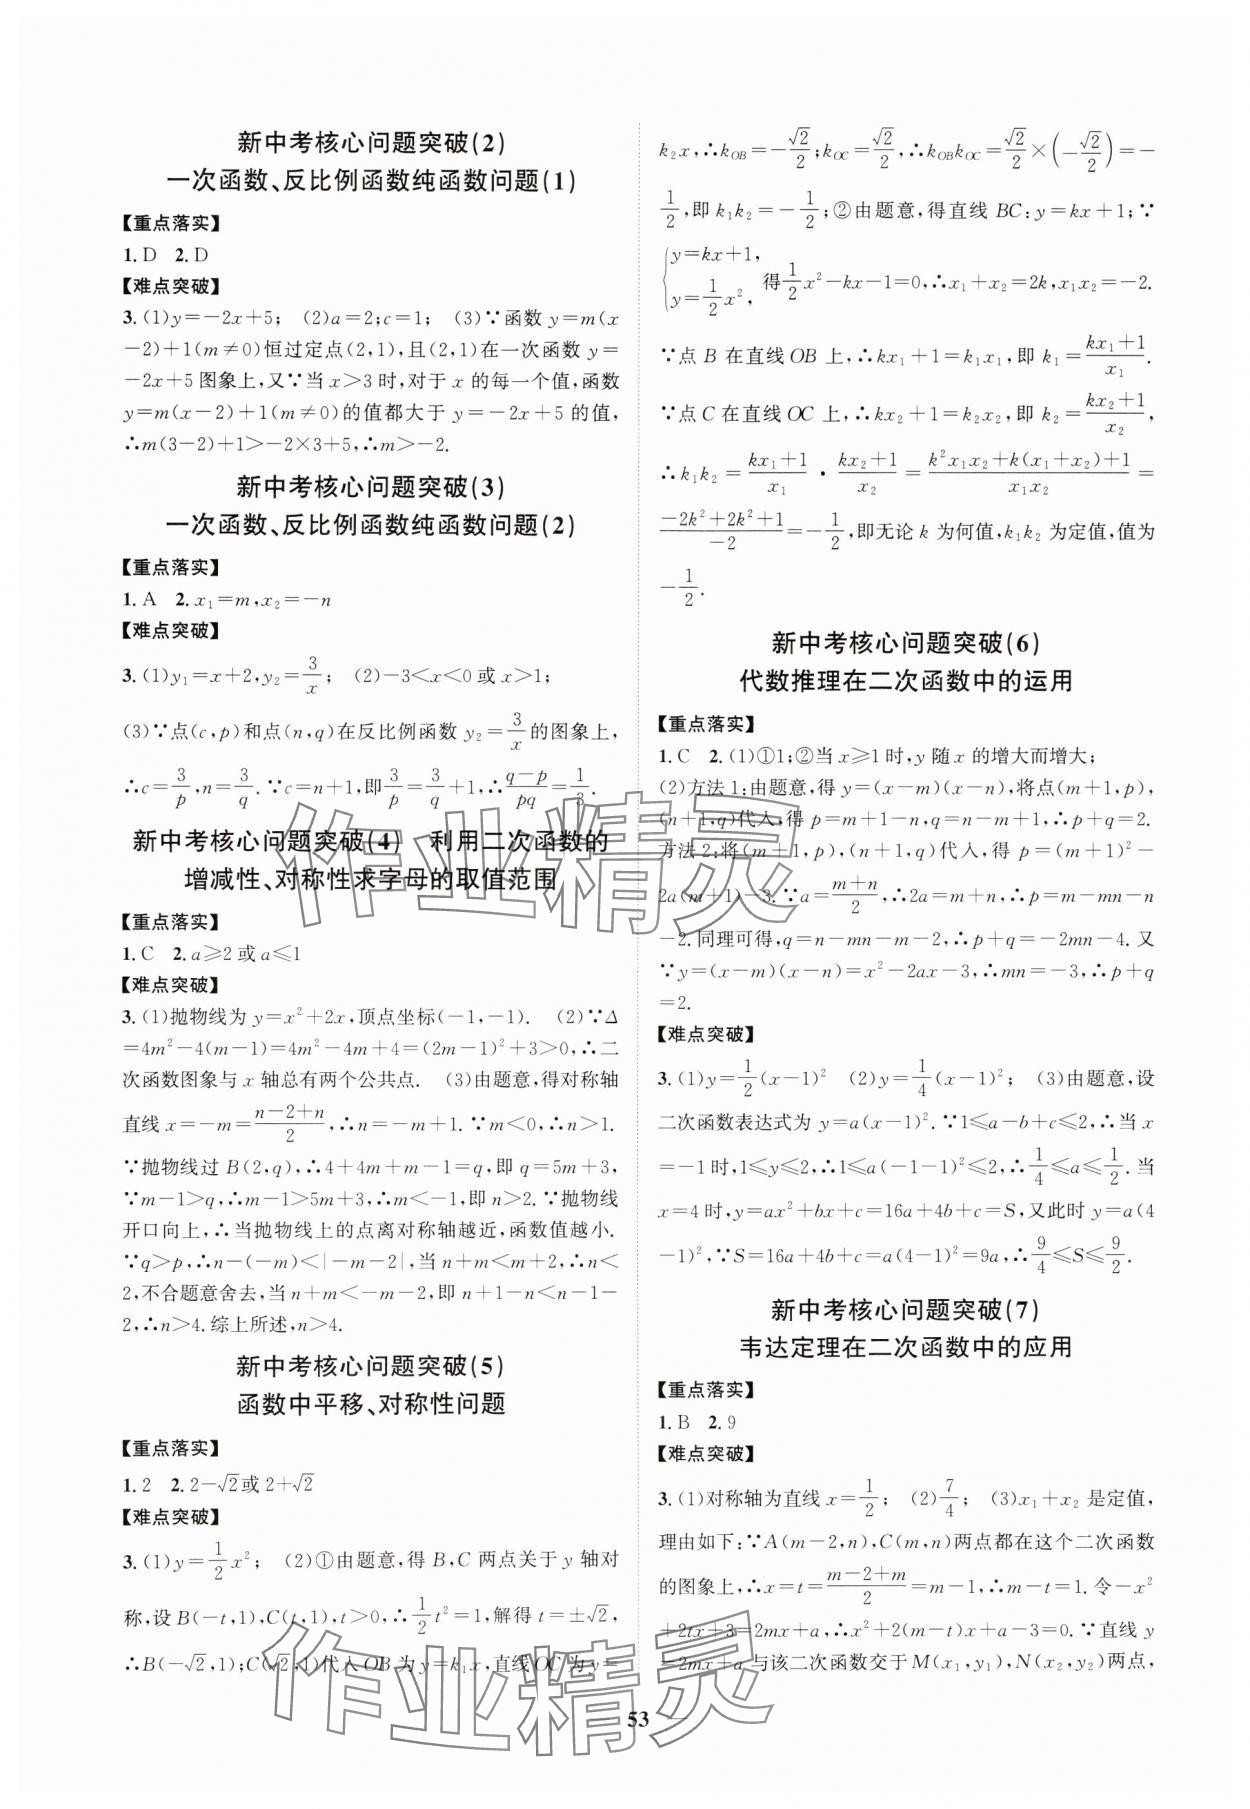 新中考核心问题突破(2)
一次函数、反比例函数纯函数问题(1)
【重点落实】
1. D 2. D
【难点突破】
3. (1)y=-2x+5; (2)a=2;c=1; (3)∵函数 y=m(x
-2)+1(m≠0)恒过定点(2,1),且(2,1)在一次函数 y=
-2x+5图象上,又∵当 x>3时,对于 x 的每一个值,函数
y=m(x-2)+1(m≠0)的值都大于 y=-2x+5的值,
∴m(3-2)+1>-2×3+5,∴m>-2.
新中考核心问题突破(3)
一次函数、反比例函数纯函数问题(2)
【重点落实】
1. A 2. x₁=m,x₂=-n
【难点突破】
3. (1)y₁=x+2,y₂=3/x; (2)-3<x<0或 x>1;
(3)∵点(c,p)和点(n,q)在反比例函数 y₂=3/x的图象上,
∴c=3/p,n=3/q.∵c=n+1,即3/p=3/q+1,∴(q-p)/pq=1/3.
新中考核心问题突破(4) 利用二次函数的
增减性、对称性求字母的取值范围
【重点落实】
1. C 2. a≥2或 a≤1
【难点突破】
3. (1)抛物线为 y=x²+2x,顶点坐标(-1,-1). (2)∵Δ
=4m²-4(m-1)=4m²-4m+4=(2m-1)²+3>0,∴二
次函数图象与 x 轴总有两个公共点. (3)由题意,得对称轴
直线 x=-m=(n-2+n)/2,∴n=-m+1.∵m<0,∴n>1.
∵抛物线过 B(2,q),∴4+4m+m-1=q,即 q=5m+3,
∵m-1>q,∴m-1>5m+3,∴m<-1,即 n>2.∵抛物线
开口向上,∴当抛物线上的点离对称轴越近,函数值越小.
∵q>p,∴n-(-m)<|-m-2|,当 n+m<m+2,∴n<
2,不合题意舍去,当 n+m<-m-2,即 n+1-n<n-1-
2,∴n>4.综上所述,n>4.
新中考核心问题突破(5)
函数中平移、对称性问题
【重点落实】
1. 2 2. 2-√2或 2+√2
【难点突破】
3. (1)y=1/2x²; (2)①由题意,得 B,C 两点关于 y 轴对
称,设 B(-t,1),C(t,1),t>0,∴1/2t²=1,解得 t=±√2,
∴B(-√2,1);C(√2,1)代入OB 为 y=k₁x,直线OC 为 y=
k₂x,∴k_OB=-√2/2;k_OC=√2/2,∴k_OBk_OC=√2/2×(-√2/2)=-
1/2,即 k₁k₂=-1/2;②由题意,得直线 BC:y=kx+1;∵
{y=kx+1, y=1/2x², 得1/2x²-kx-1=0,∴x₁+x₂=2k,x₁x₂=-2.
∵点 B 在直线 OB 上,∴kx₁+1=k₁x₁,即 k₁=(kx₁+1)/x₁.
∵点 C 在直线 OC 上,∴kx₂+1=k₂x₂,即 k₂=(kx₂+1)/x₂,
∴k₁k₂=(kx₁+1)/x₁·(kx₂+1)/x₂=(k²x₁x₂+k(x₁+x₂)+1)/x₁x₂=
(-2k²+2k²+1)/-2=-1/2,即无论 k 为何值,k₁k₂ 为定值,值为
-1/2.
新中考核心问题突破(6)
代数推理在二次函数中的运用
【重点落实】
1. C 2. (1)①1;②当 x≥1时,y 随 x 的增大而增大;
(2)方法1:由题意,得 y=(x-m)(x-n),将点(m+1,p),
(n+1,q)代入,得 p=m+1-n,q=n-m+1,∴p+q=2.
方法2:将(m+1,p),(n+1,q)代入,得 p=(m+1)²-
2a(m+1)-3.∵a=(m+n)/2,∴2a=m+n,∴p=m-mn-n
-2.同理可得,q=n-mn-m-2,∴p+q=-2mn-4.又
∵y=(x-m)(x-n)=x²-2ax-3,∴mn=-3,∴p+q
=2.
【难点突破】
3. (1)y=1/2(x-1)² (2)y=1/4(x-1)²; (3)由题意,设
二次函数表达式为 y=a(x-1)².∵1≤a-b+c≤2,∴当 x
=-1时,1≤y≤2,∴1≤a(-1-1)²≤2,∴1/4≤a≤1/2.当
x=4时,y=ax²+bx+c=16a+4b+c=S,又此时 y=a(4
-1)²,∵S=16a+4b+c=a(4-1)²=9a,∴9/4≤S≤9/2.
新中考核心问题突破(7)
韦达定理在二次函数中的应用
【重点落实】
1. B 2. 9
【难点突破】
3. (1)对称轴为直线 x=1/2; (2)7/4; (3)x₁+x₂ 是定值,
理由如下:∵A(m-2,n),C(m,n)两点都在这个二次函数
的图象上,∴x=t=(m-2+m)/2=m-1,∴m-t=1.令-x²
+2tx+3=2mx+a,∴x²+2(m-t)x+a-3=0.∵直线 y
=2mx+a 与该二次函数交于 M(x₁,y₁),N(x₂,y₂)两点,
— 53 —
作业精灵
作业精灵